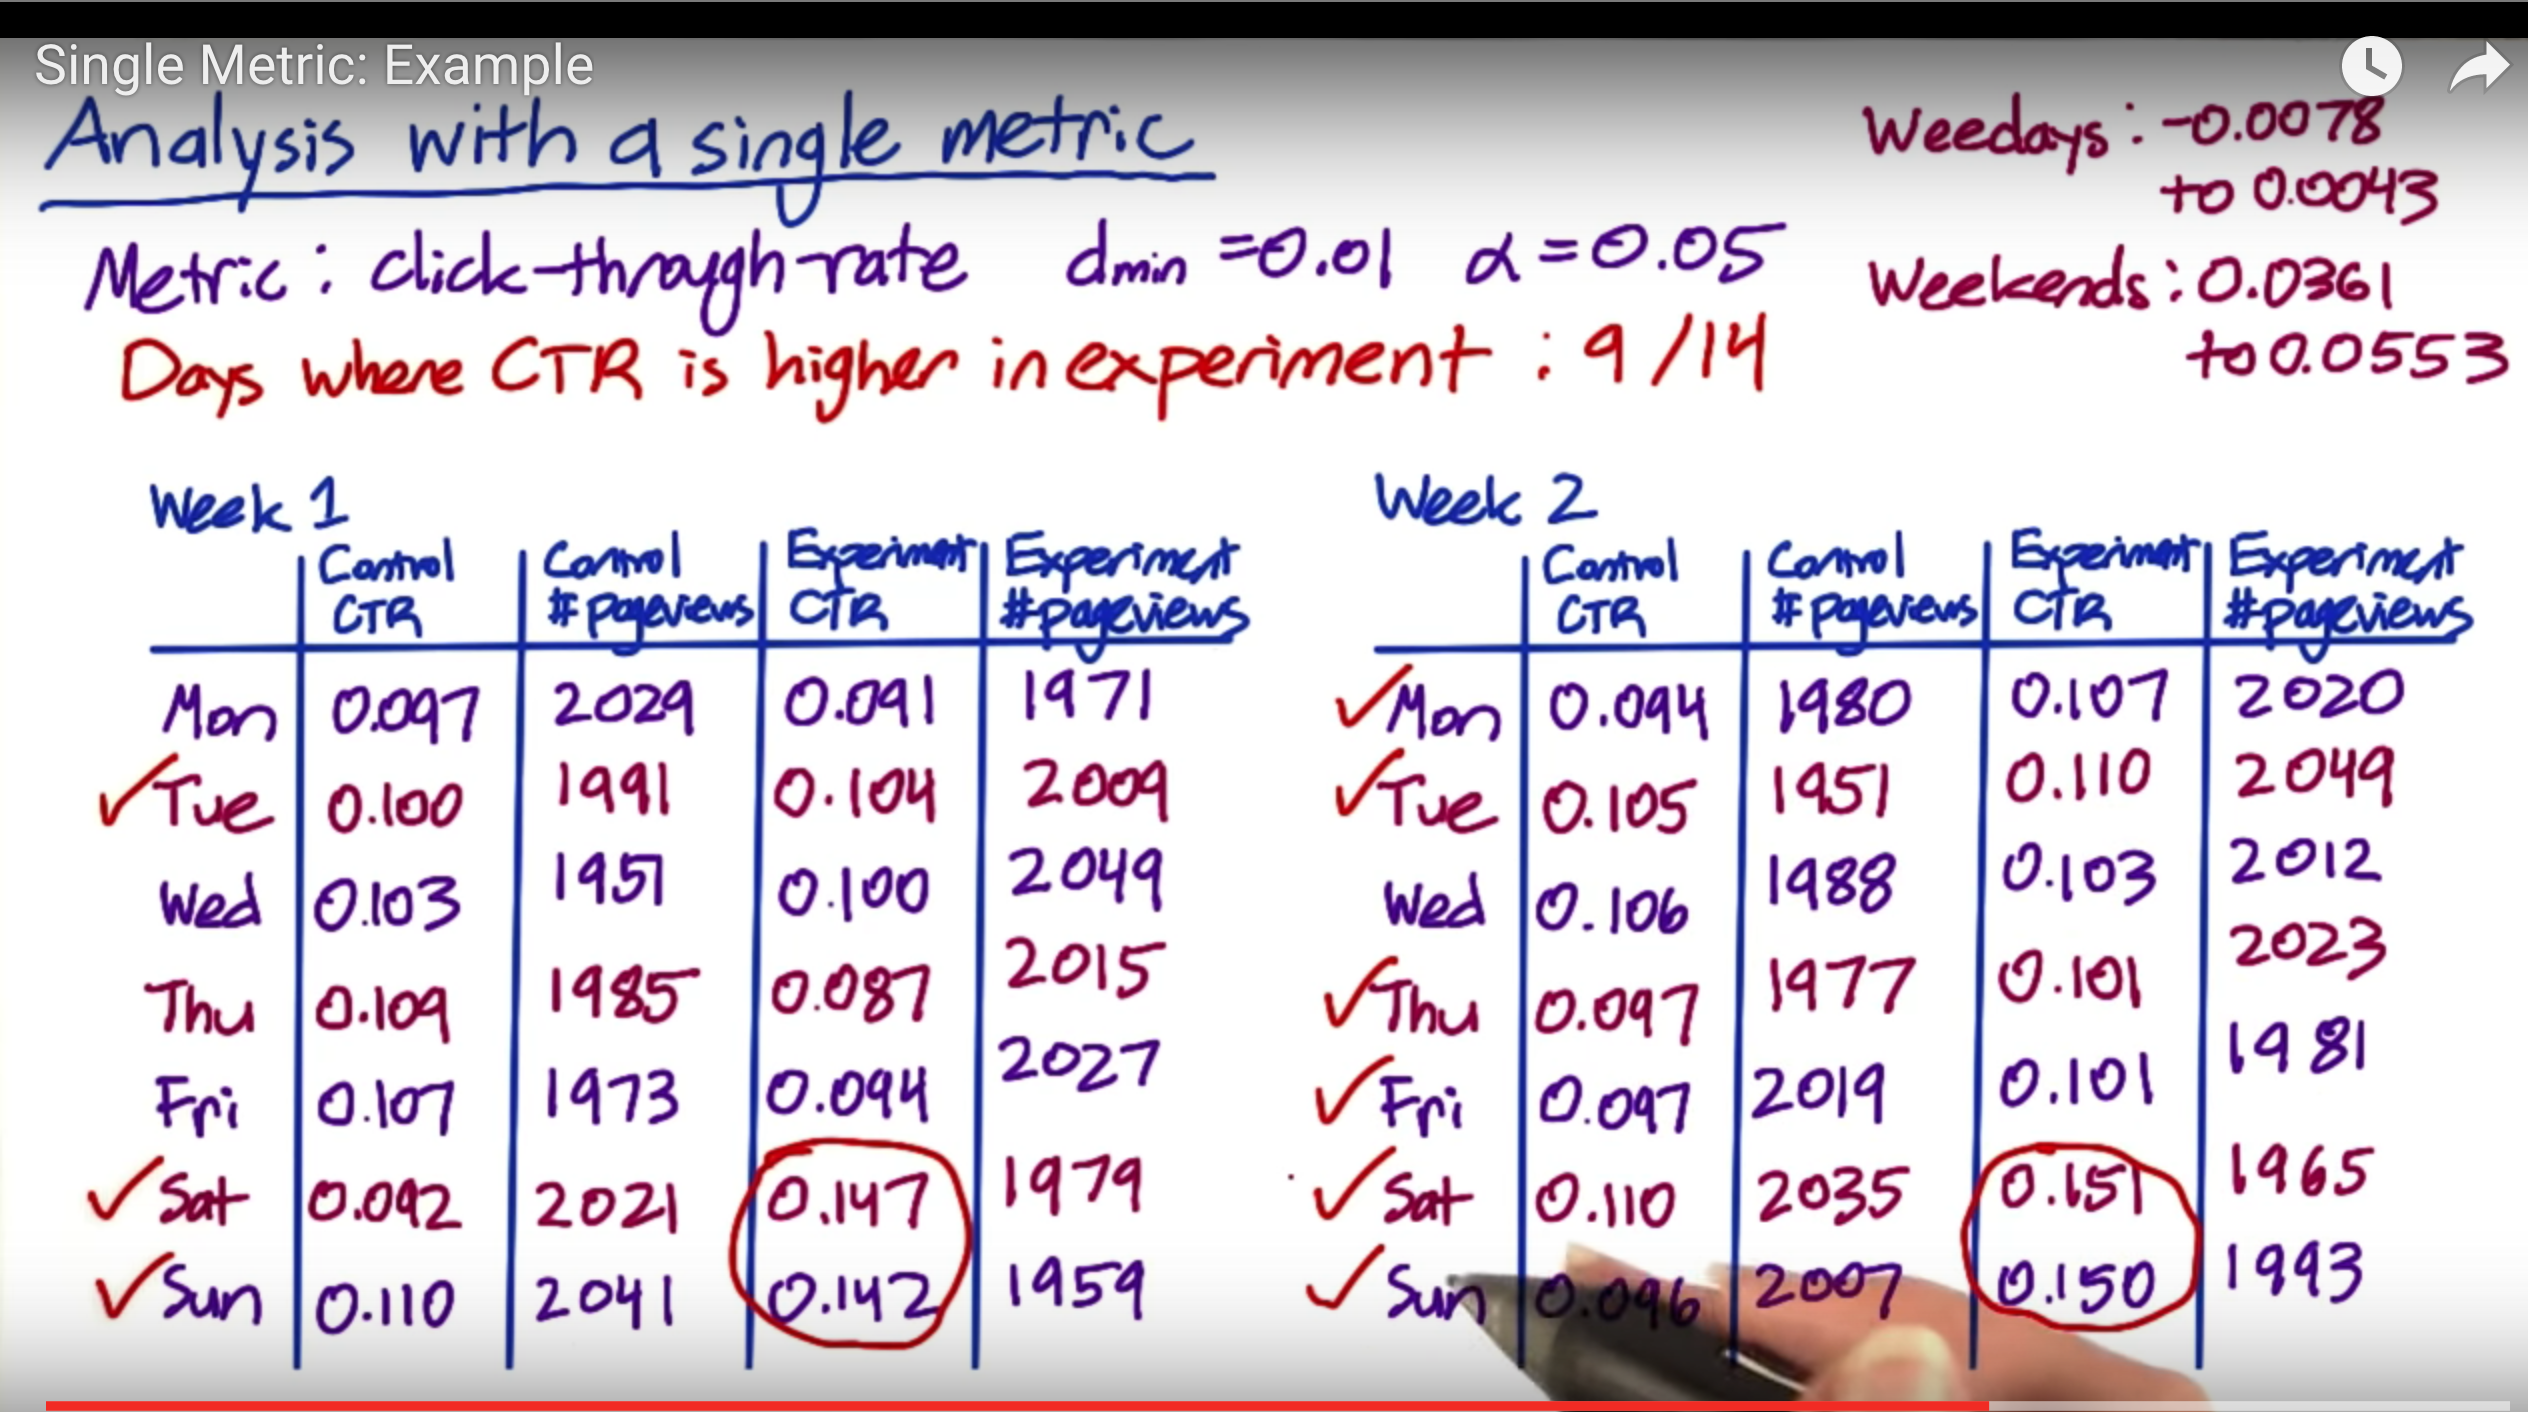 Single Metric: Example
Analysis with a single metric
Metric: click-through-rate dmin =0.01 α =0.05
Days where CTR is higher in experiment : 9/14
Weedays: -0.0078
to 0.0043
Weekends: 0.0361
to 0.0553
Week 1
Control CTR Control # pageviews Experiment CTR Experiment # pageviews
Mon 0.097 2029 0.091 1971
✓ Tue 0.100 1991 0.104 2009
Wed 0.103 1951 0.100 2049
Thu 0.109 1985 0.087 2015
Fri 0.107 1973 0.094 2027
✓ Sat 0.092 2021 0.147 1979
✓ Sun 0.110 2041 0.142 1959
Week 2
Control CTR Control # pageviews Experiment CTR Experiment # pageviews
✓ Mon 0.094 1980 0.107 2020
✓ Tue 0.105 1951 0.110 2049
Wed 0.106 1988 0.103 2012
✓ Thu 0.097 1977 0.101 2023
✓ Fri 0.097 2019 0.101 1981
✓ Sat 0.110 2035 0.151 1965
✓ Sun 0.096 2007 0.150 1993